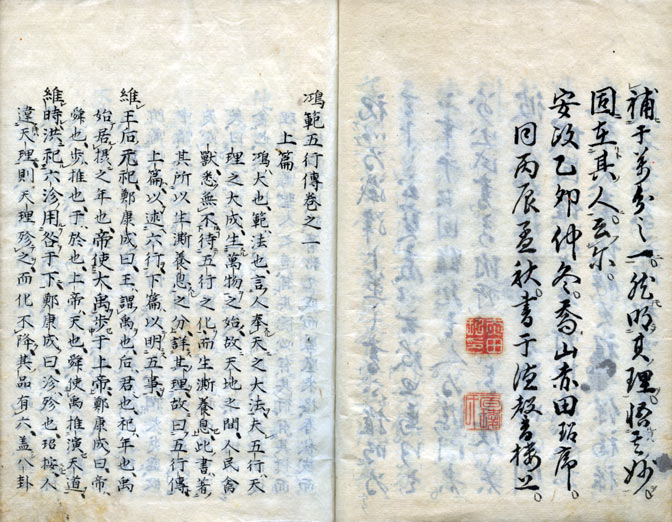 補于萬分之一。然明其理。悟其妙。
固在其人。云尔。
安政乙卯仲冬。喬山赤田
同丙辰孟秋書于
鴻範五行傳卷之一
上篇
鴻大也、範法也、言人奉天之大法、夫五行、天
理之大成、生萬物之始、故天地之間、人民禽
獸、悉無不待五行之化、而生澌養息、此書著
其所以生澌養息之分、詳其理、故曰五行傳、
上篇以述六行、下篇以明五事、
維王后元祀、鄭康成曰、王謂禹也、后君也、祀年也、禹
始居攝之年也、帝使大禹步于上帝、鄭康成曰、帝
舜也、步推也、于於也、上帝天也、舜使禹推演天道、
維時洪祀六沴、用咎于下、鄭康成曰、沴殄也、按人
違天理、則天理殄之、而化不降、其品有六、盖八卦